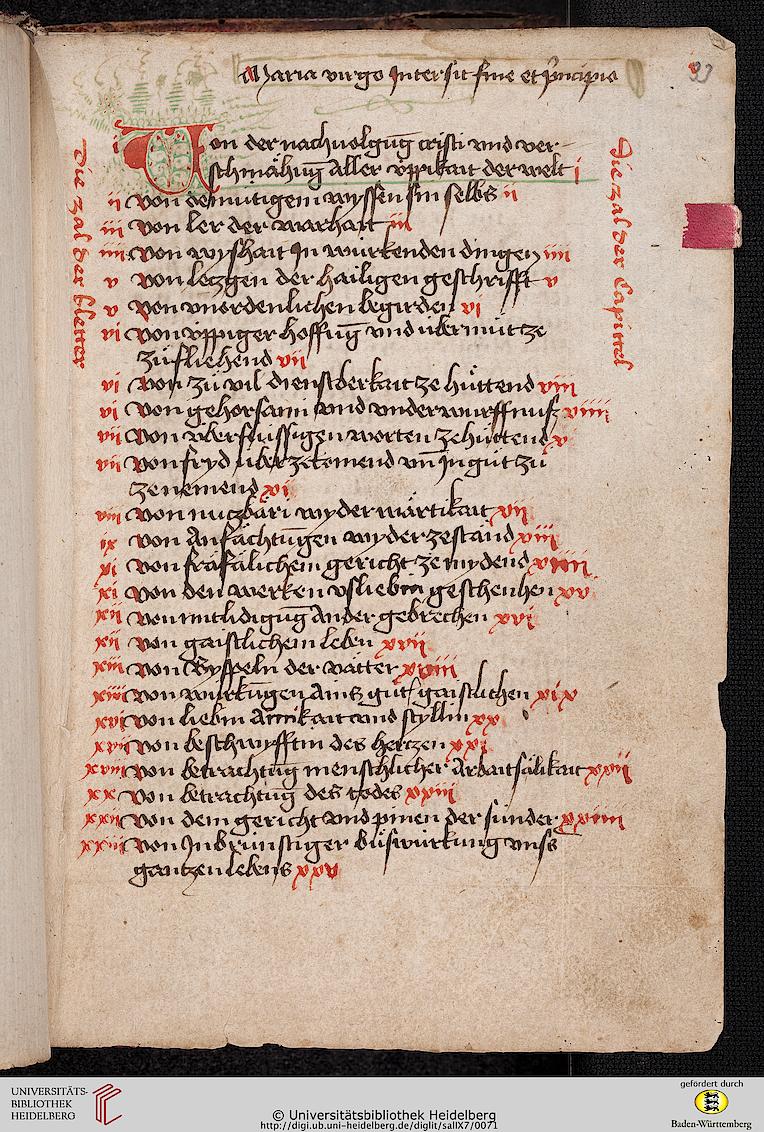 Maria virgo Intersit fine et principio
33
Die zal der bletter
Die zal der Capittel
i Von der nachuolgūg cristi vnd ver-
schmähūg aller üppikait der welt i
ii von demütigem wyssen sin selbs ii
iii von ler der warhait iii
iiii von wyshait In würkenden dingen iiii
v von leczgen der hailigen geschrifft v
v von vnordenlichen begirden vi
vi von üppiger hoffnūg vnd übermüt ze
zü fliehend vii
vi von zü vil dienstberkait ze hüttend viii
vi von gehorsami vnd vnderwurffnusz viiii
vii von vberflüssigen worten ze hüttend x
vii von fryd über ze komend vn̄ In güt zü
ze nemend xi
viii von nuczbäri wyderwärtikait xii
ix von Anfächtūgen wyder ze stānd xiii
xi von fräfälichem gericht ze mydend xiiii
xi von den werken vs liebin geschenhen xv
xii von mitlidigūg ander gebrechen xvi
xii von gaistlichem leben xvii
xiii von Byspeln der vätter xviiii
xiiii von würkūgen ains güt gaistlichen xix
xvi von liebin Ainikait vnd styllin xx
xvii von beschwyfftin des herczen xxi
xviii von betrachtūg menschlicher Arbaitsälikait xxii
xx von betrachtūg des todes xxiii
xxii von dem gericht vnd pinen der sünder xxiiii
xxiii von Inbrünstiger büswürkung vnss
gantzen lebens xxv
UNIVERSITÄTS-
BIBLIOTHEK
HEIDELBERG
© Universitätsbibliothek Heidelberg
http://digi.ub.uni-heidelberg.de/diglit/salIX7/0071
gefördert durch
Baden-Württemberg